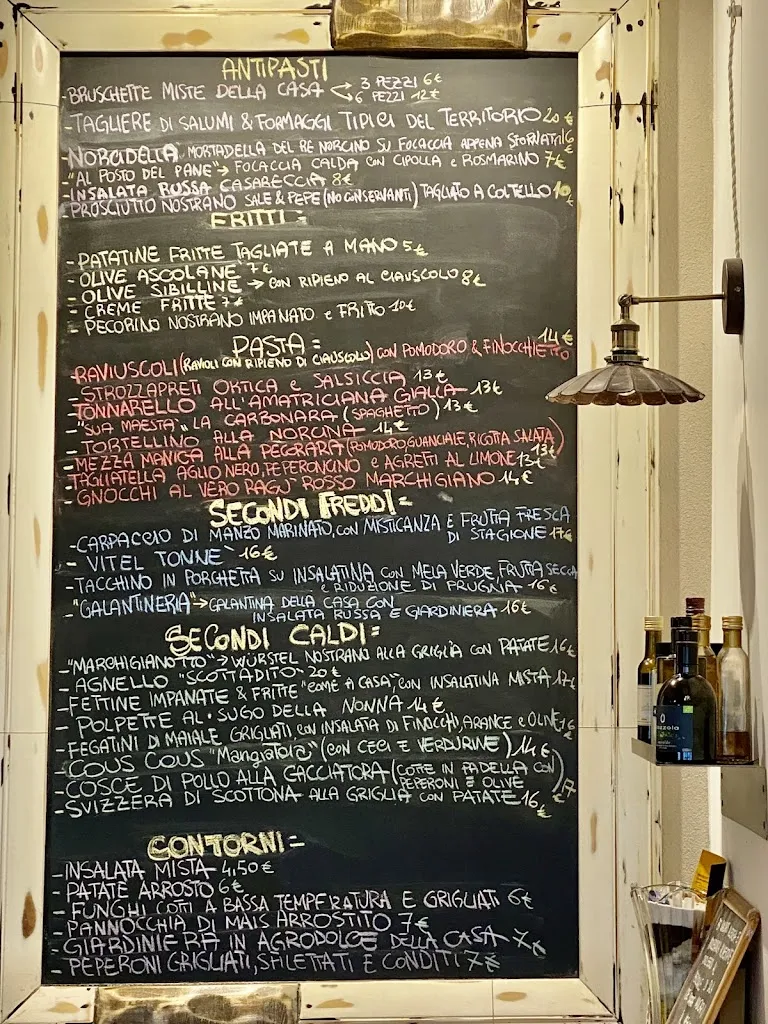 ANTIPASTI
-BRUSCHETTE MISTE DELLA CASA 3 PEZZI 6€
6 PEZZI 12€
-TAGLIERE DI SALUMI & FORMAGGI TIPICI DEL TERRITORIO 20€
-NORCIDELLA MORTADELLA DEL RE NORCINO SU FOCACCIA APPENA SFORNATA 16€
"AL POSTO DEL PANE"→ FOCACCIA CALDA CON CIPOLLA E ROSMARINO 7€
-INSALATA RUSSA CASARECCIA 8€
-PROSCIUTTO NOSTRANO SALE & PEPE (NO CONSERVANTI) TAGLIATO A COLTELLO 10
FRITTI=
-PATATINE FRITTE TAGLIATE A MANO 5€
-OLIVE ASCOLANE 7€
-OLIVE SIBILLINE → CON RIPIENO AL CIAUSCOLO 8€
-CREME FRITTE 7€
-PECORINO NOSTRANO IMPANATO E FRITTO 10€
PASTA=
-RAVIUSCOLI (RAVIOLI CON RIPIENO DI CIAUSCOLO) CON POMODORO & FINOCCHIETTO 14€
-STROZZAPRETI ORTICA E SALSICCIA 13€
-TONNARELLO ALL'AMATRICIANA GIALLA 13€
-"SUA MAESTÀ" LA CARBONARA (SPAGHETTO) 13€
-TORTELLINO ALLA NORCINA 14€
-MEZZA MANICA ALLA PECORARA (POMODORO, GUANCIALE, RICOTTA SALATA) 13€
-TAGLIATELLA AGLIO NERO, PEPERONCINO E AGRETTI AL LIMONE 13€
-GNOCCHI AL VERO RAGÙ ROSSO MARCHIGIANO 14€
SECONDI FREDDI=
-CARPACCIO DI MANZO MARINATO, CON MISTICANZA E FRUTTA FRESCA
DI STAGIONE 17€
-VITEL TONNÈ 16€
-TACCHINO IN PORCHETTA SU INSALATINA CON MELA VERDE FRUTTA SECCA
E RIDUZIONE DI PRUGNA 16€
-"GALANTINERIA"→GALANTINA DELLA CASA CON
INSALATA RUSSA E GIARDINIERA 16€
SECONDI CALDI=
-"MARCHIGIANOTTO"→ WÜRSTEL NOSTRANO ALLA GRIGLIA CON PATATE 16€
-AGNELLO "SCOTTADITO" 20€
-FETTINE IMPANATE & FRITTE "COME A CASA", CON INSALATINA MISTA 17€
-POLPETTE AL SUGO DELLA NONNA 14€
-FEGATINI DI MAIALE GRIGLIATI CON INSALATA DI FINOCCHI, ARANCE E OLIVE 16€
-COUS COUS "Mangiatoia" (CON CECI E VERDURINE) 14€
-COSCE DI POLLO ALLA CACCIATORA (COTTE IN PADELLA CON
PEPERONI E OLIVE) 17
-SVIZZERA DI SCOTTONA ALLA GRIGLIA CON PATATE 16€
CONTORNI=
-INSALATA MISTA 4,50€
-PATATE ARROSTO 6€
-FUNGHI COTTI A BASSA TEMPERATURA E GRIGLIATI 6€
-PANNOCCHIA DI MAIS ARROSTITO 7€
-GIARDINIERA IN AGRODOLCE DELLA CASA 7€
-PEPERONI GRIGLIATI, SFILETTATI E CONDITI 7€